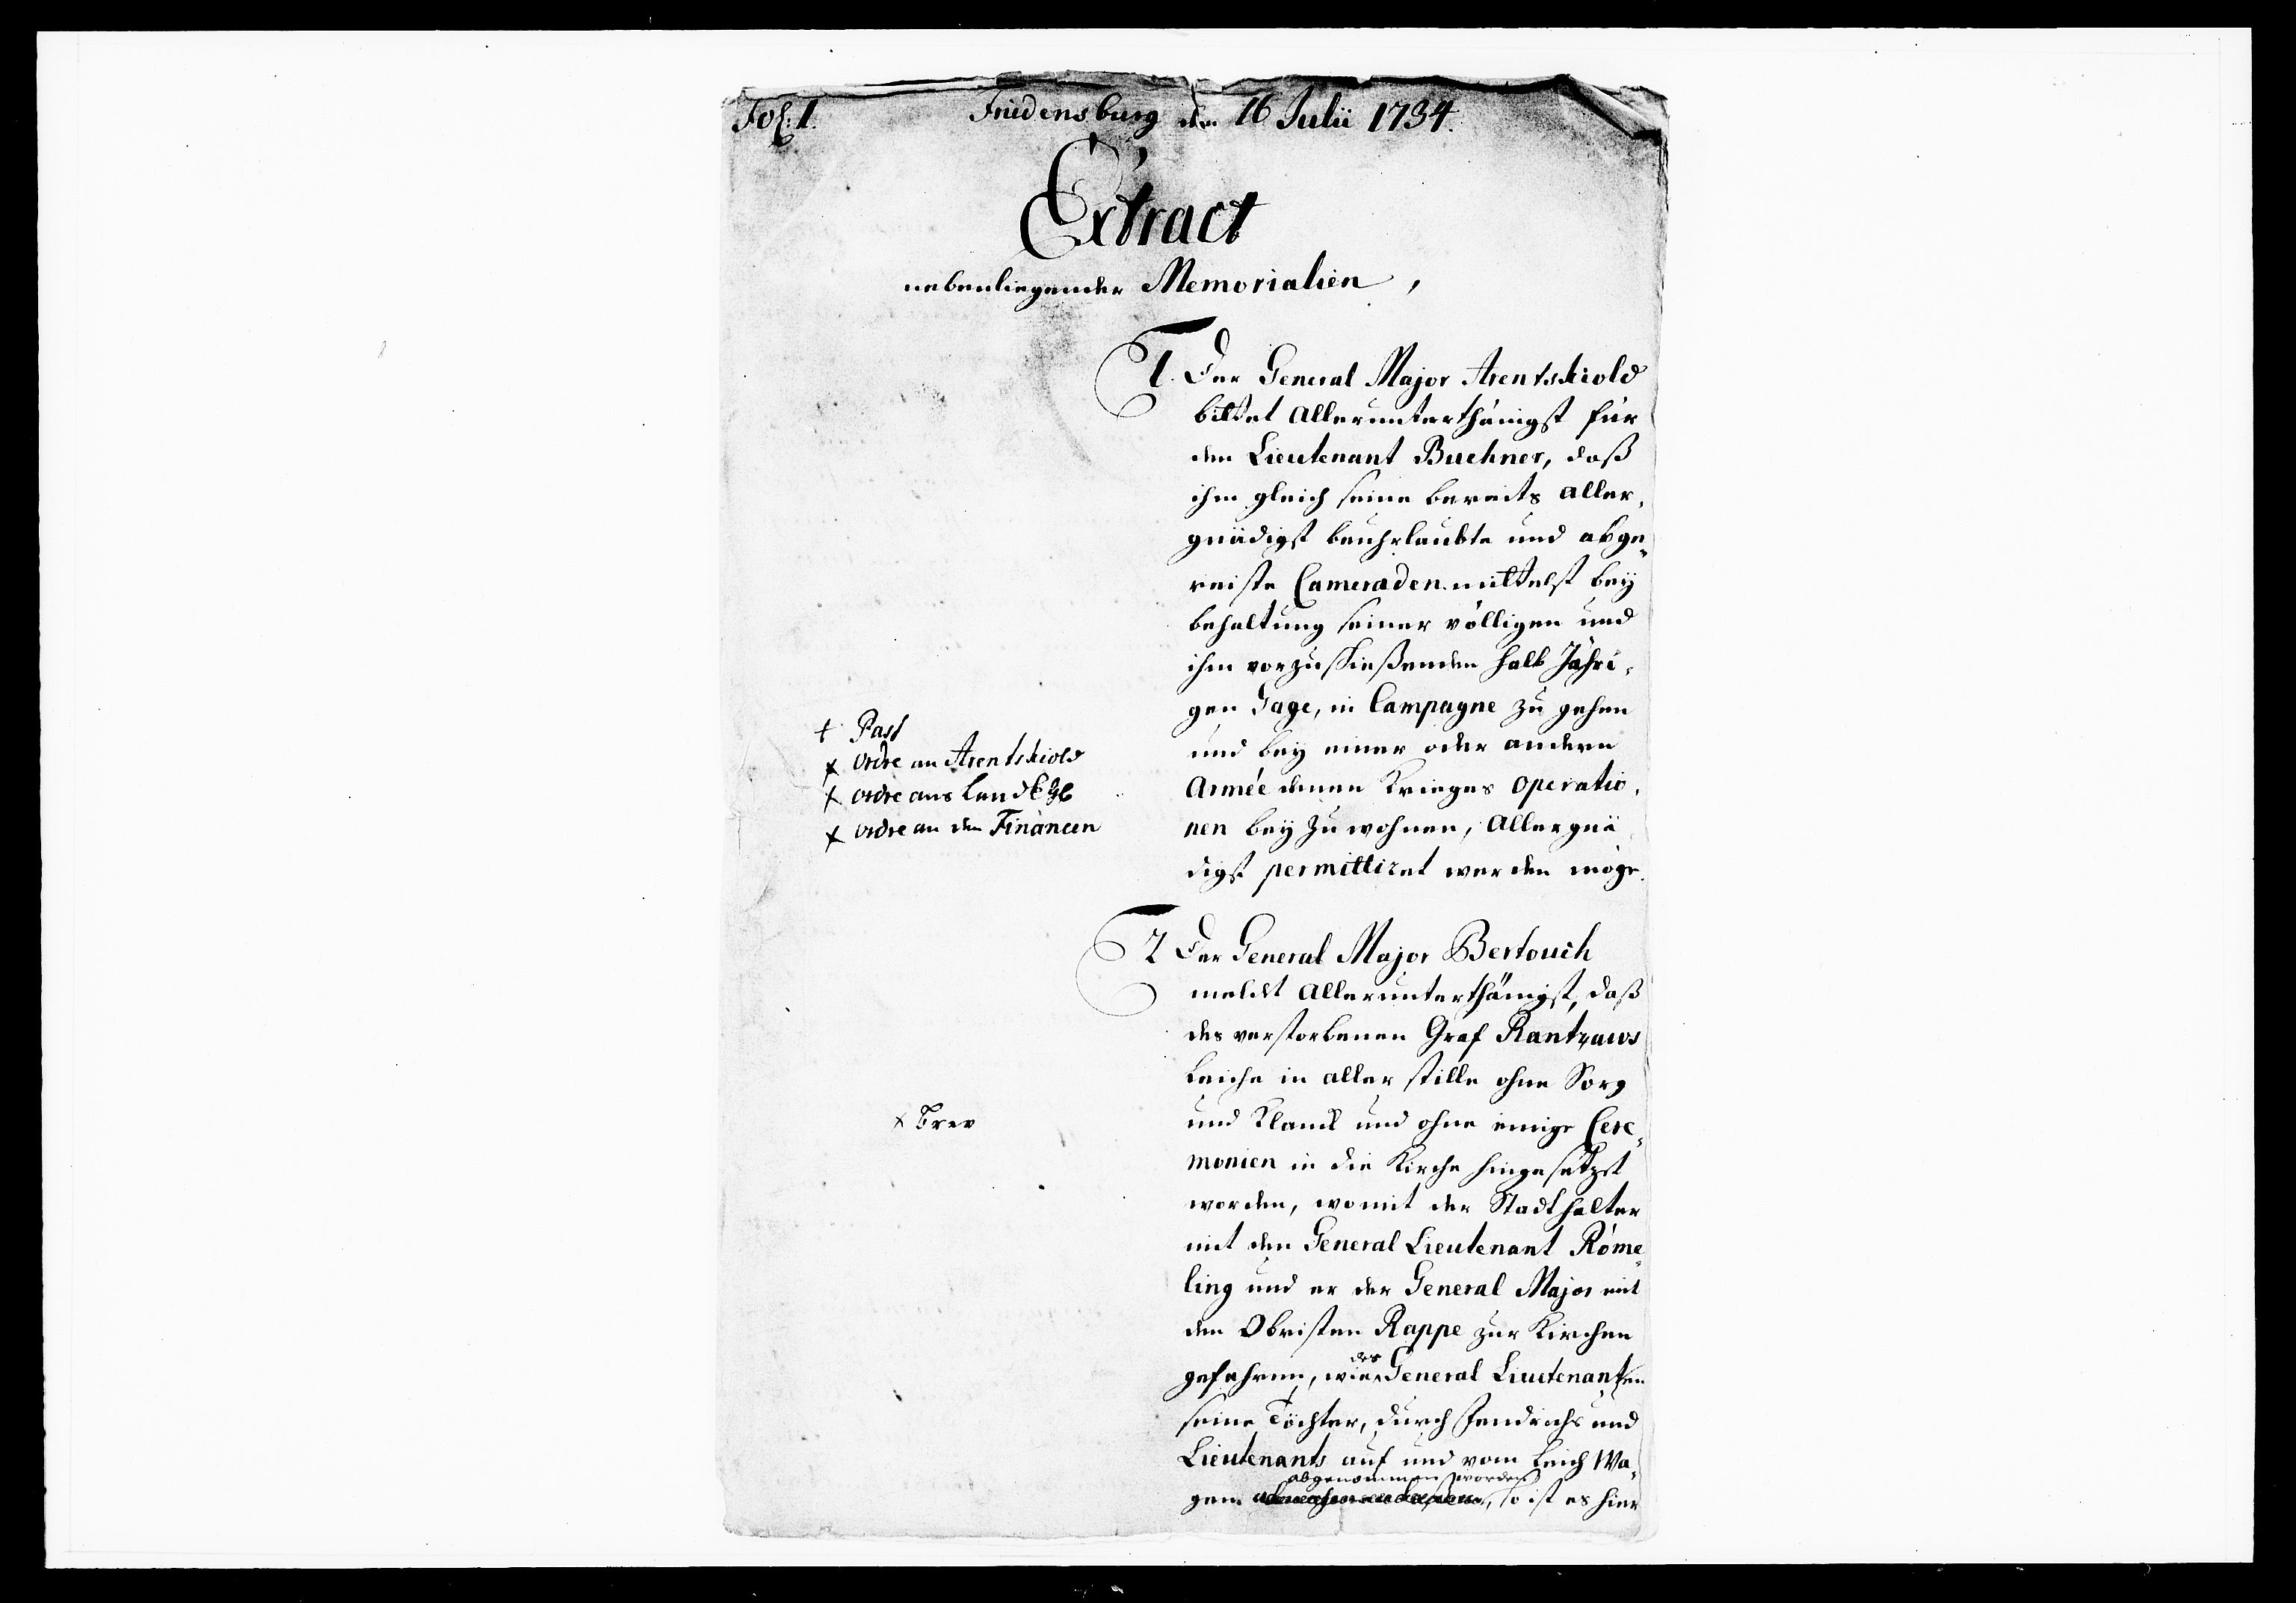 Fol: 1.
Friedensburg den 16 Julii 1734.
Extract
nebenliegender Memorialien,
1. Der General Major Arentskiold
bittet allerunterthänigst für
den Lieutenant Buchner, daß
ihm gleich seine bereits aller-
gnädigst beuhrlaubte und abge-
reiste Cameraden mittelst bey
behaltung seiner völligen und
ihm vorzuschießenden halb Jähri-
gen Gage, in Campagne zu gehen
und bey einer oder andern
Armée denen Krieges operatio-
nen bey zu wohnen, Allergnä
digst permittiret werden möge.
+ Pass
x ordre an Arentskiold
x ordre ans Land
x ordre an den Financen
2 Der General Major Bertouch
meldt allerunterthänigst, daß
des verstorbenen Graf Rantzaws
Leiche in aller stille ohne Sang
und Klanck und ohne einige Cere-
monien in die Kirche hingesetzet
worden, womit der Stadthalter
mit den General Lieutenant Röme-
ling und er der General Major mit
den Obristen Rappe zur Kirchen
gefahren, wie des General Lieutenanten
seine Töchter, durch Fendrichs und
Lieutenants auf und vom Leich Wa-
gen abgenommen worden, so ist es hier
x Brev